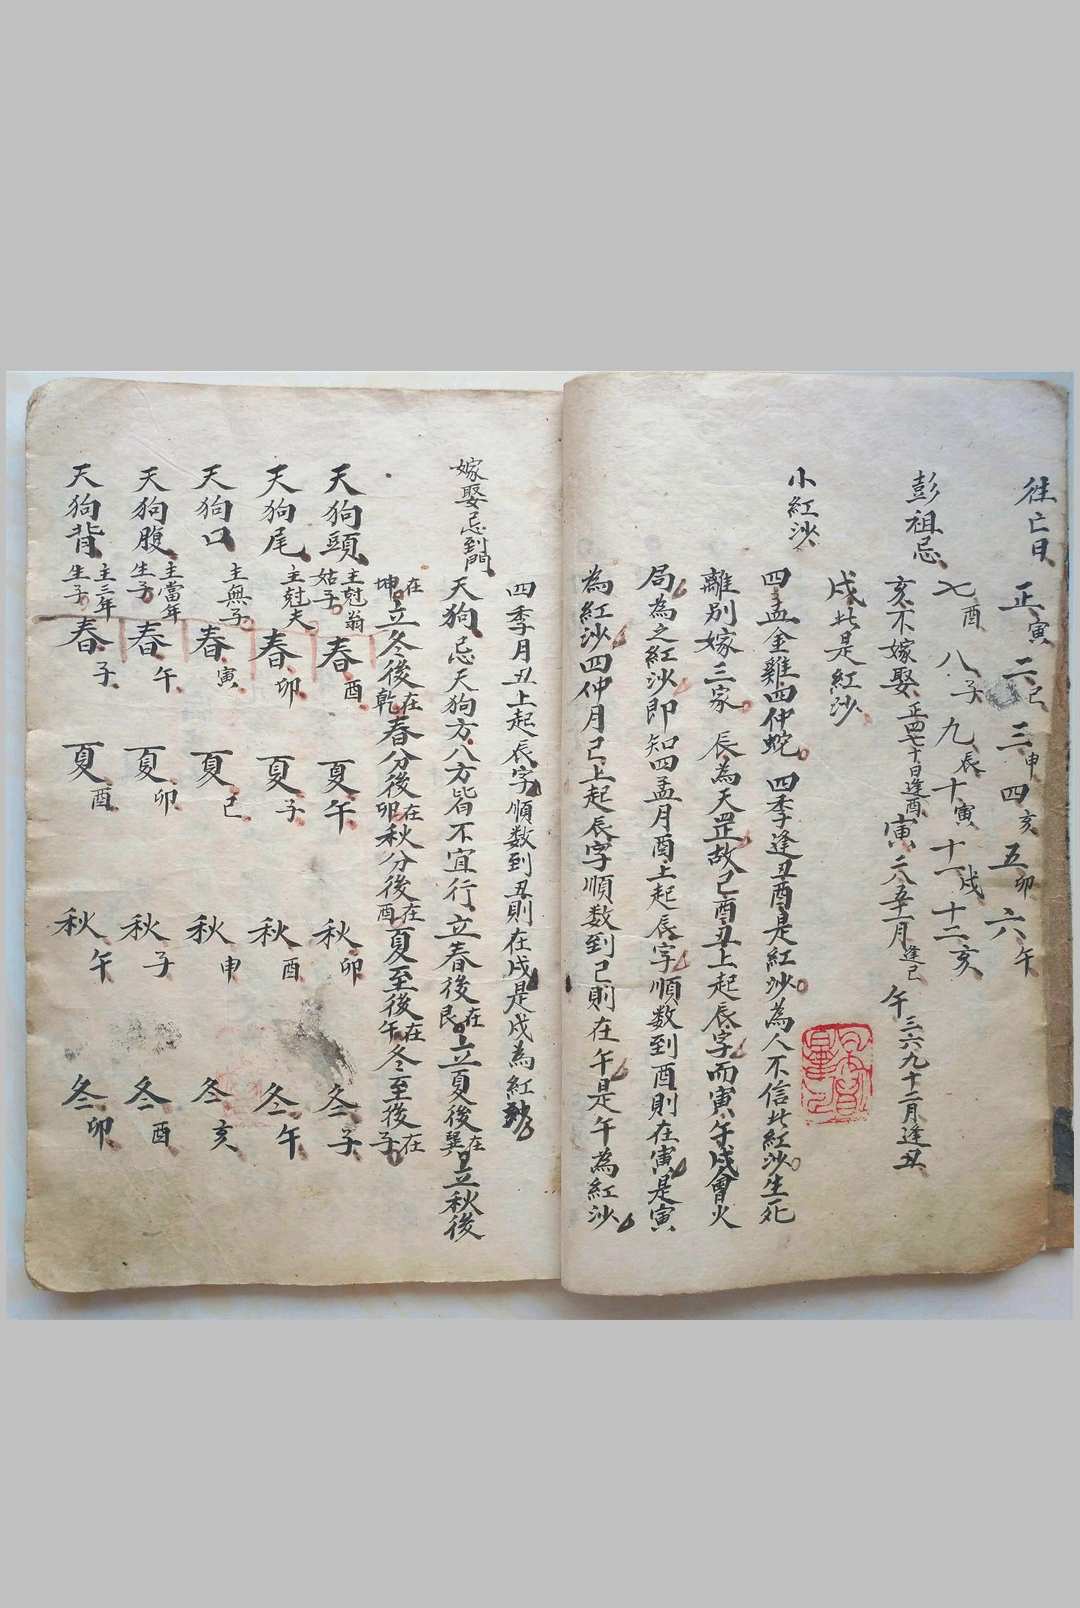 往亡日 正寅 二巳 三申 四亥 五卯 六午
七酉 八子 九辰 十寅 十一戌 十二亥
彭祖忌
亥不嫁娶 正四七十日逢酉 寅 二八五十一月逢巳 午 三六九十二月逢丑
戌此是紅沙
小紅沙
四孟金雞四仲蛇 四季逢丑酉是紅沙為人不信此紅沙生死
離別嫁三家 辰為天罡故己酉丑上起辰字而寅午戌會火
局為之紅沙即知四孟月酉上起辰字順数到酉則在寅是寅
為紅沙四仲月已上起辰字順数到已則在午是午為紅沙
四季月丑上起辰字順数到丑則在戌是戌為紅沙
嫁娶忌到門
天狗忌天狗方八方皆不宜行 立春後在艮 立夏後在巽 立秋後
在坤 立冬後在乾 春分後在卯 秋分後在酉 夏至後在午 冬至後在子
天狗頭 主尅翁姑子 春酉 夏午 秋卯 冬子
天狗尾 主尅夫 春卯 夏子 秋酉 冬午
天狗口 主無子 春寅 夏已 秋申 冬亥
天狗腹 主當年生子 春午 夏卯 秋子 冬酉
天狗背 主三年生子 春子 夏酉 秋午 冬卯